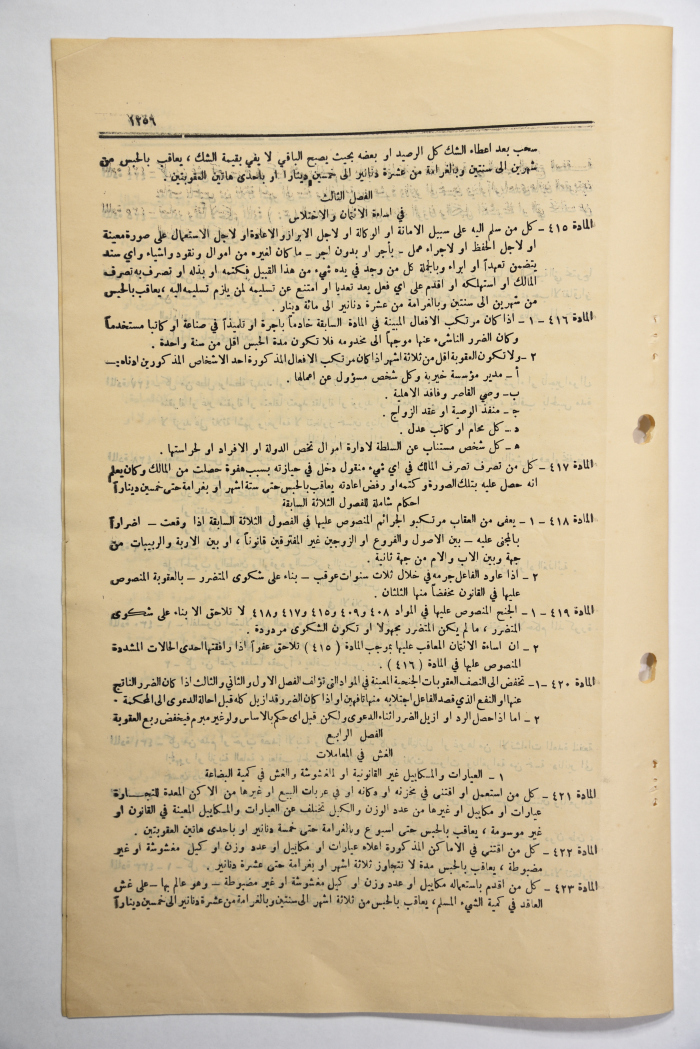 ١٢٥٩
سحب بعد اعطاء الشك كل الرصيد او بعضه بحيث يصبح الباقي لا يفي بقيمة الشك ، يعاقب بالحبس من
شهرين الى سنتين وبالغرامة من عشرة دنانير الى خمسين دينارا او باحدى هاتين العقوبتين .
الفصل الثالث
في اساءة الائتمان والاختلاس
المادة ٤١٥ – كل من سلم اليه على سبيل الامانة او الوكالة او لاجل الابراز والاعادة او لاجل الاستعمال على صورة معينة
او لاجل الحفظ او لاجراء عمل – بأجر او بدون اجر – ما كان لغيره من اموال ونقود واشياء واي سند
يتضمن تعهداً او ابراء وبالجملة كل من وجد في يده شيء من هذا القبيل فكتمه او بدله او تصرف به تصرف
المالك او استهلكه او اقدم على اي فعل يعد تعديا او امتنع عن تسليمه لمن يلزم تسليمه اليه ، يعاقب بالحبس
من شهرين الى سنتين وبالغرامة من عشرة دنانير الى مائة دينار .
المادة ٤١٦ – ١ – اذا كان مرتكب الافعال المبينة في المادة السابقة خادماً بأجرة او تلميذاً في صناعة او كاتبا مستخدماً
وكان الضرر الناشىء عنها موجهاً الى مخدومه فلا تكون مدة الحبس اقل من سنة واحدة .
٢ – ولا تكون العقوبة اقل من ثلاثة اشهر اذا كان مرتكب الافعال المذكورة احد الاشخاص المذكورين ادناه :–
أ – مدير مؤسسة خيرية وكل شخص مسؤول عن اعمالها .
ب – وصي القاصر وفاقد الاهلية .
ج – منفذ الوصية او عقد الزواج .
د – كل محام او كاتب عدل .
ه – كل شخص مستناب عن السلطة لادارة اموال تخص الدولة او الافراد او لحراستها .
المادة ٤١٧ – كل من تصرف تصرف المالك في اي شيء منقول دخل في حيازته بسبب هفوة حصلت من المالك وكان يعلم
انه حصل عليه بتلك الصورة وكتمه او رفض اعادته يعاقب بالحبس حتى ستة اشهر او بغرامة حتى خمسين ديناراً
احكام شاملة للفصول الثلاثة السابقة
المادة ٤١٨ – ١ – يعفى من العقاب مرتكبو الجرائم المنصوص عليها في الفصول الثلاثة السابقة اذا وقعت – اضراراً
بالمجنى عليه – بين الاصول والفروع او الزوجين غير المفترقين قانوناً ، او بين الاربة والربيبات من
جهة وبين الاب والام من جهة ثانية .
٢ – اذا عاود الفاعل جرمه في خلال ثلاث سنوات عوقب – بناء على شكوى المتضرر – بالعقوبة المنصوص
عليها في القانون مخفضاً منها الثلثان .
المادة ٤١٩ – ١ – الجنح المنصوص عليها في المواد ٤٠٨ و ٤٠٩ و ٤١٥ و ٤١٧ و ٤١٨ لا تلاحق الا بناء على شكوى
المتضرر ، ما لم يكن المتضرر مجهولا او تكون الشكوى مردودة .
٢ – ان اساءة الائتمان المعاقب عليها بموجب المادة ( ٤١٥ ) تلاحق عفواً اذا رافقتها احدى الحالات المشددة
المنصوص عليها في المادة ( ٤١٦ ) .
المادة ٤٢٠ – ١ – تخفض الى النصف العقوبات الجنحية المعينة في المواد التي تؤلف الفصل الاول والثاني والثالث اذا كان الضرر الناتج
عنها او النفع الذي قصد الفاعل اجتلابه منها تافهين او اذا كان الضرر قد ازيل كله قبل احالة الدعوى الى المحكمة .
٢ – اما اذا حصل الرد او ازيل الضرر اثناء الدعوى ولكن قبل اي حكم بالاساس ولو غير مبرم فيخفض ربع العقوبة
الفصل الرابع
الغش في المعاملات
١ – العيارات والمكاييل غير القانونية او المغشوشة والغش في كمية البضاعة
المادة ٤٢١ – كل من استعمل او اقتنى في مخزنه او دكانه او في عربات البيع او غيرها من الاماكن المعدة للتجارة
عيارات او مكاييل او غيرها من عدد الوزن والكيل تختلف عن العيارات والمكاييل المعينة في القانون او
غير موسومة ، يعاقب بالحبس حتى اسبوع وبالغرامة حتى خمسة دنانير او باحدى هاتين العقوبتين .
المادة ٤٢٢ – كل من اقتنى في الاماكن المذكورة اعلاه عيارات او مكاييل او عدد وزن او كيل مغشوشة او غير
مضبوطة ، يعاقب بالحبس مدة لا تتجاوز ثلاثة اشهر او بغرامة حتى عشرة دنانير .
المادة ٤٢٣ – كل من اقدم باستعماله مكاييل او عدد وزن او كيل مغشوشة او غير مضبوطة – وهو عالم بها – على غش
العاقد في كمية الشيء المسلم ، يعاقب بالحبس من ثلاثة اشهر الى سنتين وبالغرامة من عشرة دنانير الى خمسين ديناراً